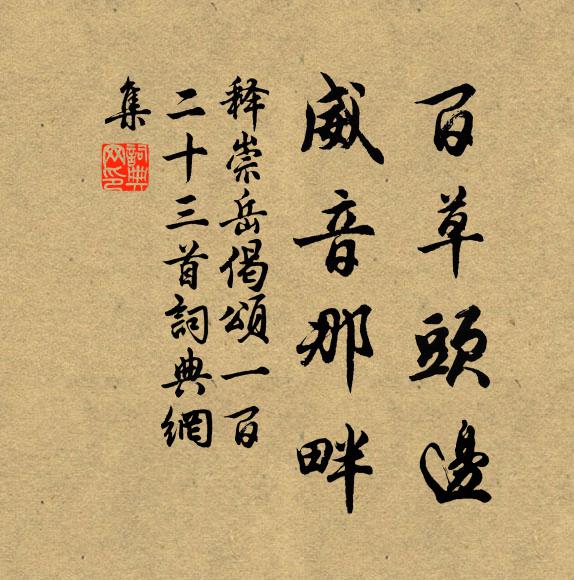 百草頭邊
威音那畔
释崇岳偈頌一百
二十三首詞典網
集
詞典
网印